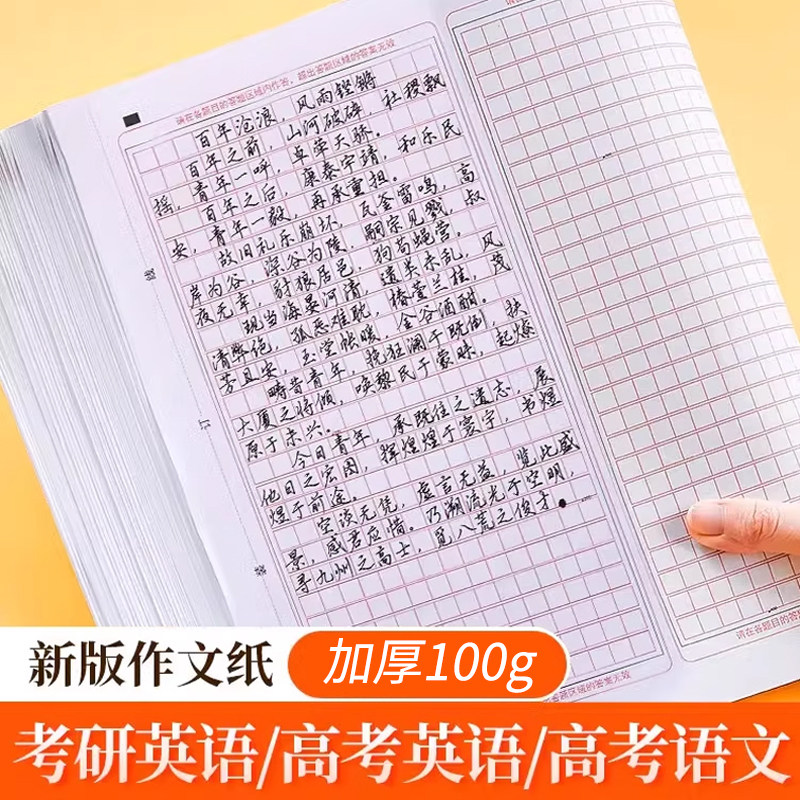 请在各题目的答题区域内作答，超出答题区域的答案无效
百年沧浪，风雨铿锵
百年之前，山河破碎，社稷飘
摇，青年一呼，卓荦天骄。
百年之后，康泰宁靖，和乐民
安，青年一毅，再承重担。
故旧礼乐崩坏，瓦釜雷鸣，高
岸为谷，深谷为陵，嗣宗见戮，叔
夜无幸，豺狼居邑，狗苟蝇营。
现当海晏河清，遗美未乱，风
清弊绝，狐恶难觅，椿萱兰桂，茂
芳且安，玉堂帐暖，金谷酒酣。
畴昔青年，挽狂澜于既倒，扶
大厦之将倾，唤魏民于蒙昧，起燎
原于未兴。
今日青年，承既往之遗志，展
他日之宏图，辉煌煌于寰宇，书煜
煜于前途。
空谈无凭，虚言无益，览此盛
景，感君应惜。乃溯流光于空明，
寻九州之高士，觅八荒之俊才。
请在各题目的答
答题区域的答案无效
新版作文纸
加厚100g
考研英语/高考英语/高考语文